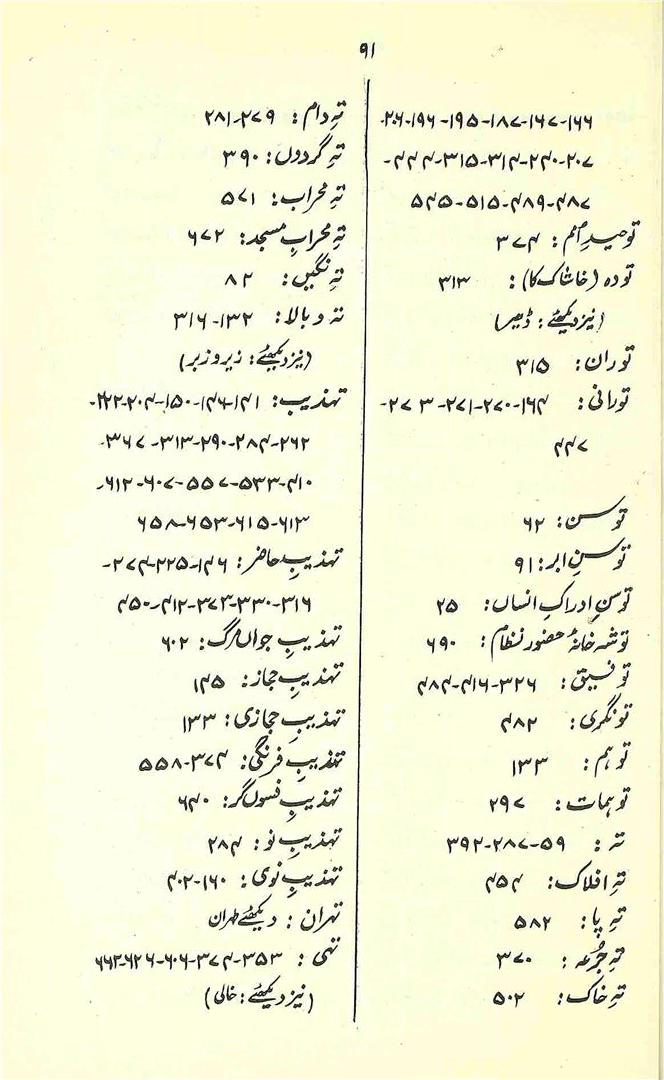 ۹۱
۱۶۶-۱۶۷-۱۸۷-۱۹۵-۱۹۶-۲۰۶-
۲۰۷-۲۴۰-۳۱۴-۳۱۵-۴۴۴-
۴۸۷-۴۸۹-۵۱۵-۵۴۵
توحیدِ اُمم: ۳۷۴
تودہ (خاشاک کا): ۳۱۳
(نیز دیکھئے: ڈھیر)
توران: ۳۱۵
تورانی: ۱۶۴-۲۷۰-۲۷۱-۲۷۳-
۴۴۷
توسن: ۶۲
توسنِ ابر: ۹۱
توسنِ ادراکِ انساں: ۲۵
توشہ خانۂ حضور نظام: ۶۹۰
توفیق: ۳۲۶-۴۱۶-۴۸۴
تونگری: ۴۸۲
توہم: ۱۳۳
توہمات: ۲۹۷
تہ: ۵۹-۲۸۷-۳۹۲
تہِ افلاک: ۴۵۴
تہِ پا: ۵۸۲
تہِ جُرعہ: ۳۷۰
تہِ خاک: ۵۰۲
تہِ دام: ۲۷۹-۲۸۱
تہِ گردوں: ۳۹۰
تہِ محراب: ۵۷۱
تہِ محرابِ مسجد: ۶۷۲
تہِ نگیں: ۸۲
تہ و بالا: ۱۳۲-۳۱۶
(نیز دیکھئے: زیر و زبر)
تہذیب: ۱۴۱-۱۴۶-۱۵۰-۲۰۴-۲۲۲-
۲۶۲-۲۸۴-۲۹۰-۳۱۳-۳۶۷-
۴۱۰-۵۳۳-۵۵۷-۶۰۷-۶۱۲-
۶۱۳-۶۱۵-۶۵۳-۶۵۸
تہذیبِ حاضر: ۱۴۶-۲۲۵-۲۷۴-
۳۱۶-۳۳۰-۳۷۳-۴۱۲-۴۵۰
تہذیبِ جواں مرگ: ۶۰۲
تہذیبِ حجاز: ۱۴۵
تہذیبِ حجازی: ۱۳۳
تہذیبِ فرنگی: ۳۷۴-۵۵۸
تہذیبِ فسوں گر: ۶۴۰
تہذیبِ نو: ۲۸۴
تہذیبِ نوی: ۱۶۰-۴۰۲
تہران: دیکھئے طہران
تہی: ۳۵۳-۳۷۴-۶۰۶-۶۲۶-۶۶۲
(نیز دیکھئے: خالی)